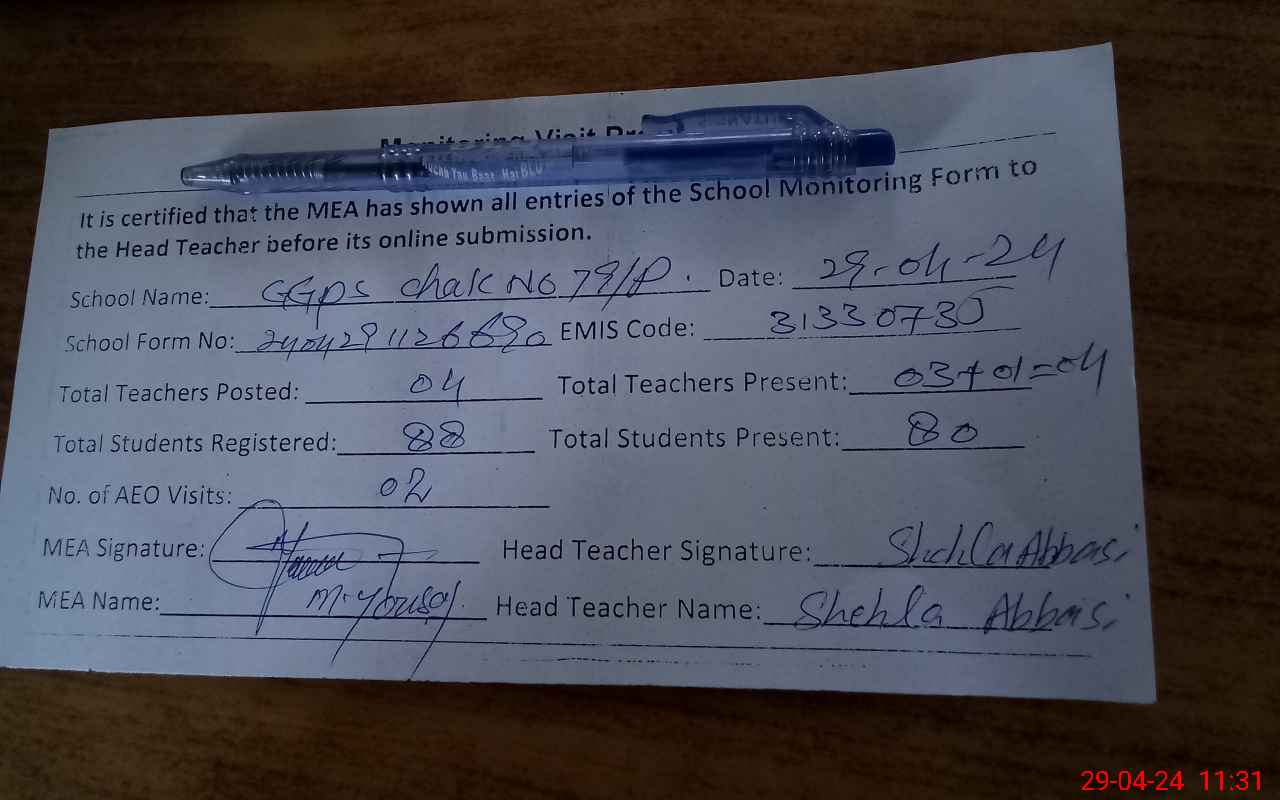 Monitoring Visit Pr
It is certified that the MEA has shown all entries of the School Monitoring Form to
the Head Teacher before its online submission.
School Name: GGPS chak No 79/P. Date: 29-04-24
School Form No: 240429112668 EMIS Code: 31330730
Total Teachers Posted: 04 Total Teachers Present: 03+01=04
Total Students Registered: 88 Total Students Present: 80
No. of AEO Visits: 02
MEA Signature: Head Teacher Signature: Shehla Abbasi
MEA Name: M. Yousaf. Head Teacher Name: Shehla Abbasi
29-04-24 11:31